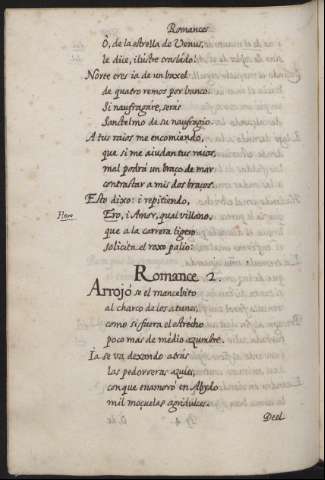 Romances
Ô, de la estrella de Venus,
le dije, ilustre traslado:
Norte eres ia de un baxel
de quatro remos por banco.
Si naufragâre, seràs
Sanctelmo de su naufragio.
A tus raios me encomiendo,
que si me aiudan tus raios,
mal podrà un braço de mar
contrastar a mis dos braços.
Esto dixo: i repitiendo,
Hero
Ero, i Amor, qual villano,
que a la carrera ligero
solicita el roxo palio.
Romance 2.
Arrojóse el mancebito
al charco de los atunes,
como si fuera el estrecho
poco mas de mêdio azumbre.
Ia se va dexando atràs
las pedorreras azules,
con que enamorò en Abydo
mil moçuelas agridulces.
Del